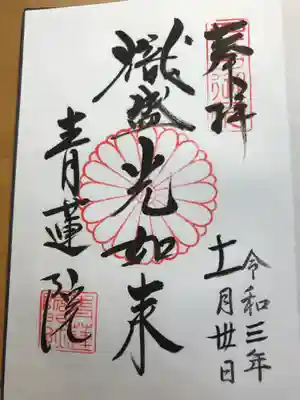 奉拝
令和三年
十一月廿日
熾盛光如来
青蓮院